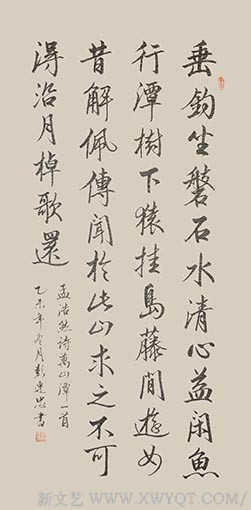 垂釣坐磐石水清心益闲魚
行潭樹下猿挂島藤間遊女
昔解佩傳聞於此山求之不可
得沿月棹歌還
孟浩然詩萬山潭一首
乙未年冬月彭忠書
新文艺 WWW.XWYQT.COM